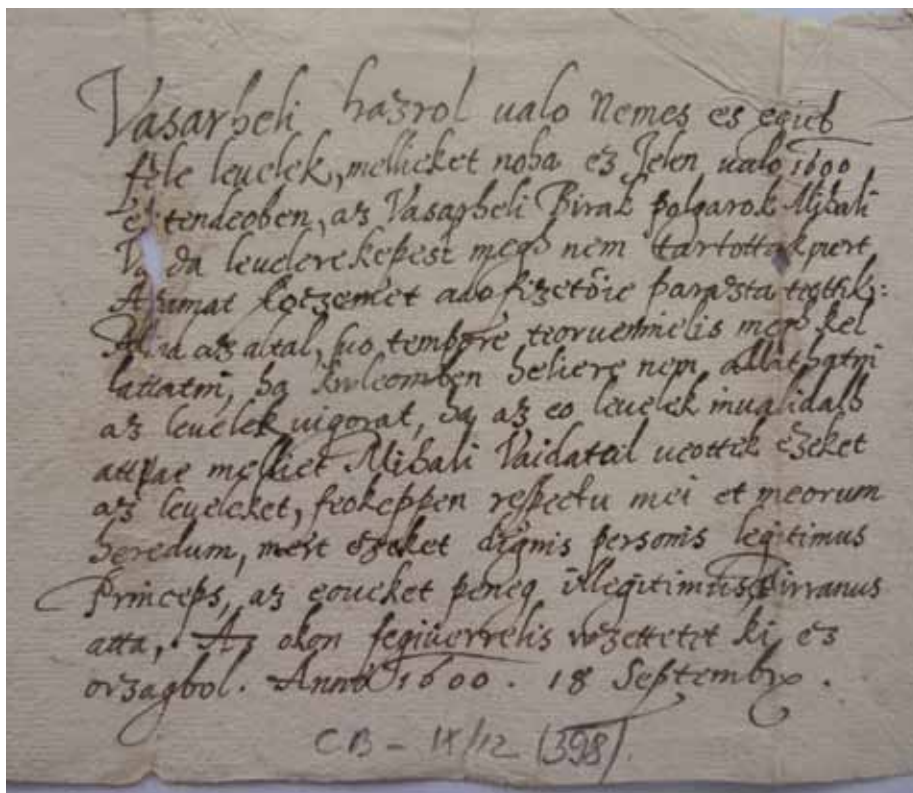 Vasarheli hazrol ualo Nemes es egieb
fele leuelek, mellieket noha ez Jelen ualo 1600
esztendeoben, az Vasarheli Birak polgarok Mihali
Vaida leuelere kepest megh nem tartottak mert
Azumat adofizetöie paraszta tettik:
az altal, suo tempore teoruennielis megh kel
lattatni, ha kwleomben heliere nem allathatni
az leuelek uigorat, ha az eo leuelek inualidalh
attpac melliet Mihali Vaidatol ueottek ezeket
az leueleket, feokeppen respectu mei et meorum
heredum, mert ezeket dignis personis legitimus
Princeps, az eoueket peneg illegitimus Tirranus
atta, Az okon fegiüerrelis wzettetet ki ez
orzagbol. Anno 1600. 18 Septembr.
CB - IX/12 (398)